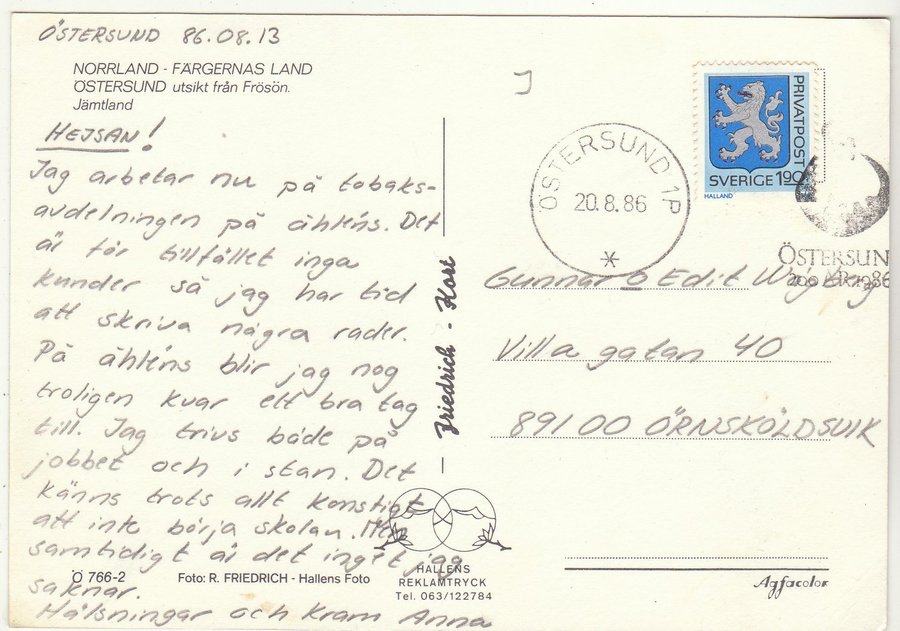 ÖSTERSUND 86.08.13
NORRLAND - FÄRGERNAS LAND
ÖSTERSUND utsikt från Frösön.
Jämtland
HEJSAN!
Jag arbetar nu på tobaks-
avdelningen på åhléns. Det
är för tillfället inga
kunder så jag har tid
att skriva några rader.
På åhléns blir jag nog
troligen kvar ett bra tag
till. Jag trivs både på
jobbet och i stan. Det
känns trots allt konstigt
att inte börja skolan. Men
samtidigt är det inget jag
saknar.
Hälsningar och kram Anna
Ö 766-2
Foto: R. FRIEDRICH - Hallens Foto
Friedrich - Kort
HALLENS
REKLAMTRYCK
Tel. 063/122784
ÖSTERSUND 1P
20.8.86
PRIVATPOST
SVERIGE 190
HALLAND
ÖSTERSUN
200 ÅR 1986
Gunnar o Edit
Villagatan 40
89100 ÖRNSKÖLDSVIK
Agfacolor